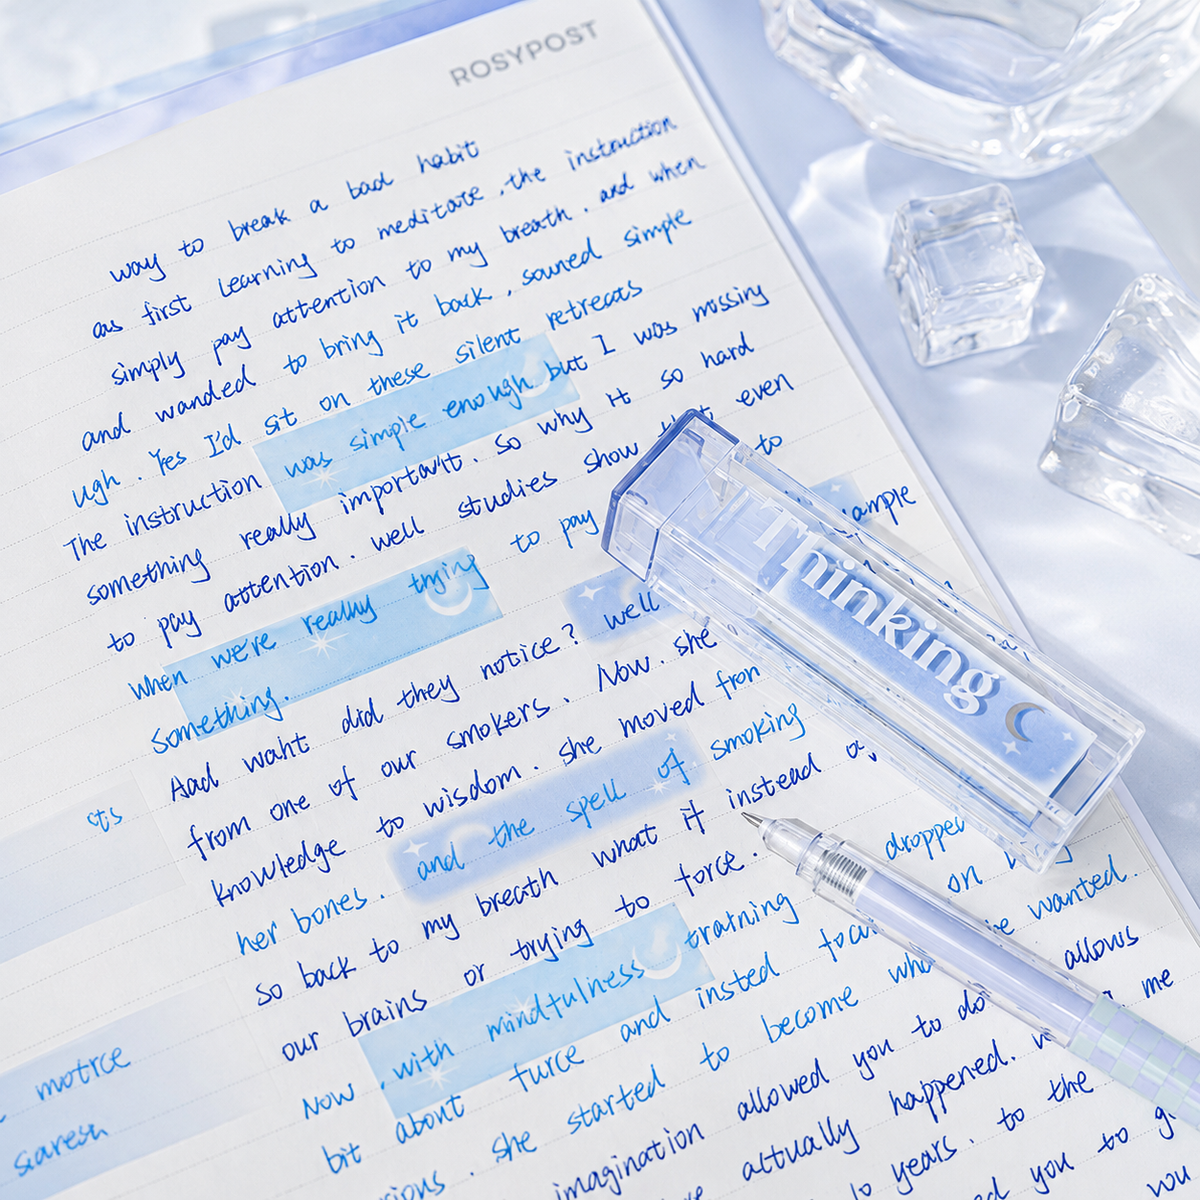 ROSYPOST
way to break a bad habit
as first learning to meditate , the instruction
simply pay attention to my breath . and when
and wanded to bring it back , souned simple
ugh . Yes I'd sit on these silent retreats
The instruction was simple enough but I was missing
something really important . So why it so hard
to pay attention . well studies show even
when we're really trying to pay to
something. example
Aad waht did they notice ? well
from one of our smokers . Now . she
knowledge to wisdom . she moved fron
her bones . and the spell of smoking
so back to my breath what it instead
our brains or trying to force .
Now , with mindfulness training dropped
bit about furce and insted on
she started to become wanted .
imagination allowed you to do allows
actually happened . me
years . to the
you to
you
motrce
Thinking